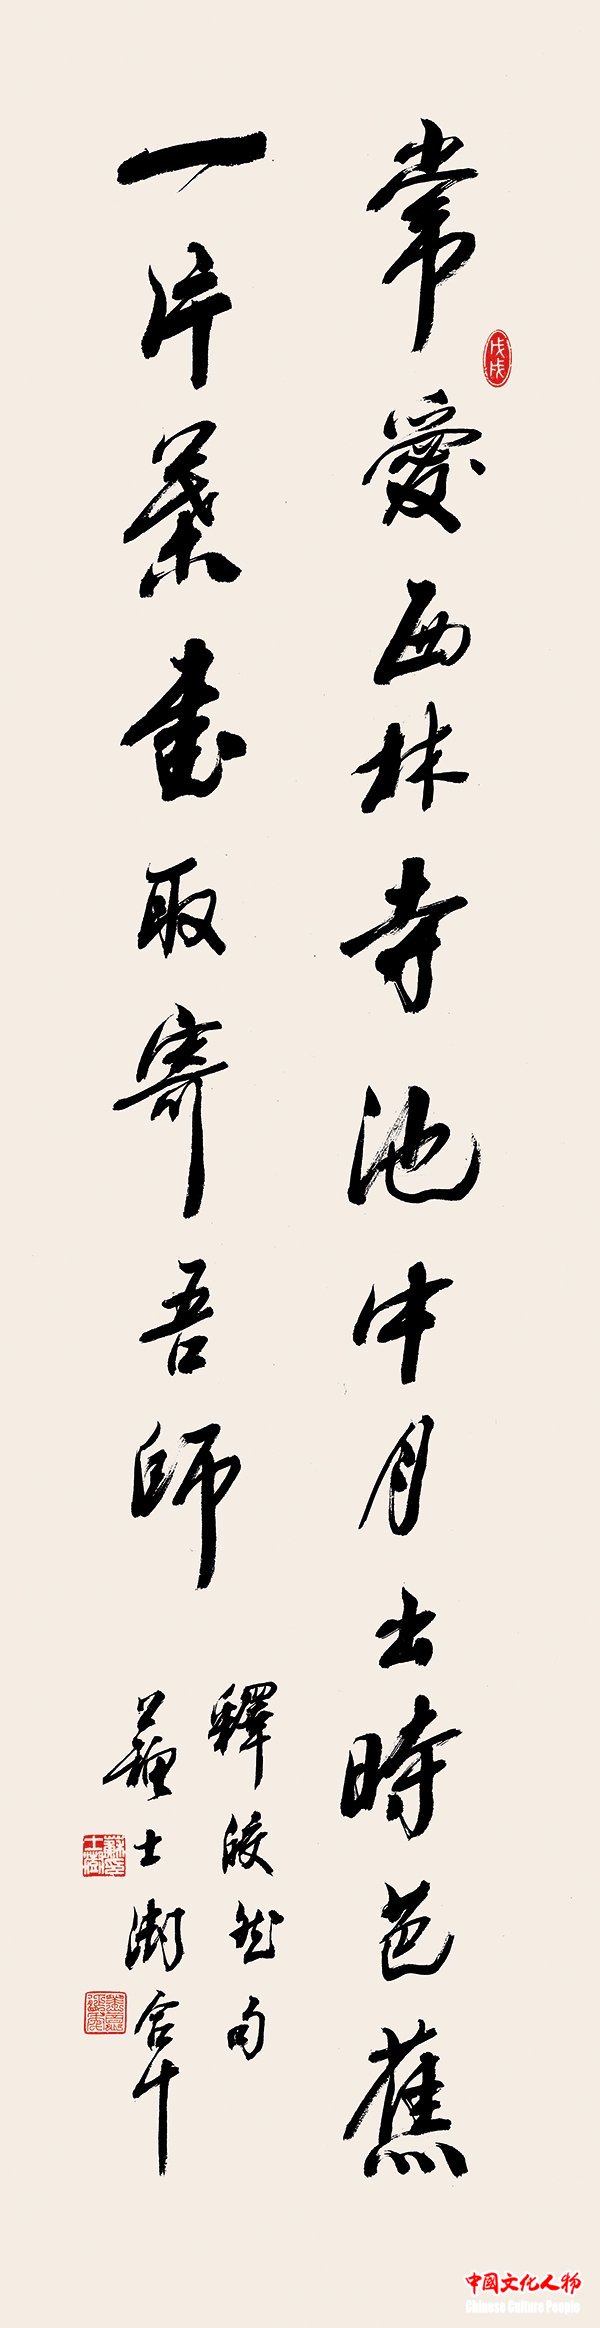 常愛西林寺池中月出時芭蕉
一片葉書取寄吾師
釋皎然句
蘇士澍合十
戊戌
中國文化人物
Chinese Culture People